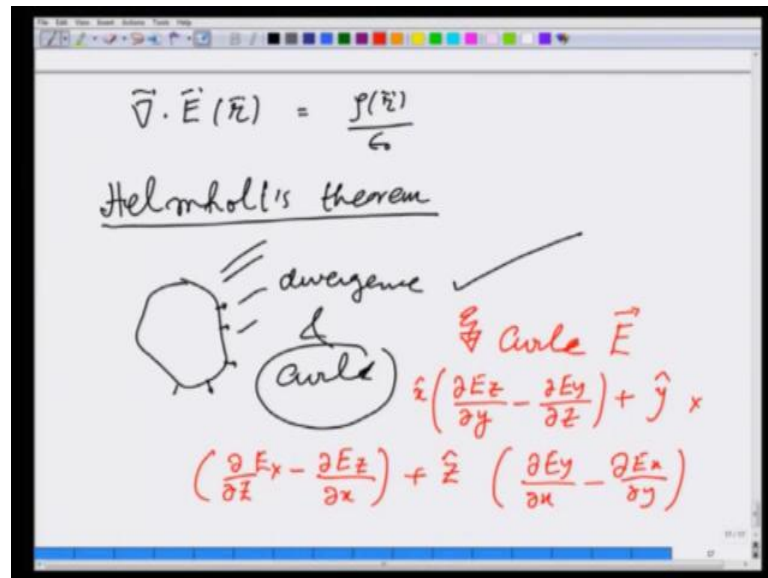 File Edit View Insert Actions Tools Help
∇⃗ · E⃗ (r⃗) = ρ(r⃗)/ε₀
Helmholtz's theorem
divergence ✓
&
curl
Curle E⃗
x̂ (∂Ez/∂y − ∂Ey/∂z) + ŷ ×
(∂Ex/∂z − ∂Ez/∂x) + ẑ (∂Ey/∂x − ∂Ex/∂y)